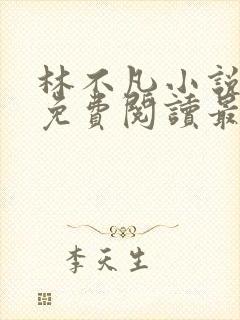 林不凡小說
免費閱讀最
李天生